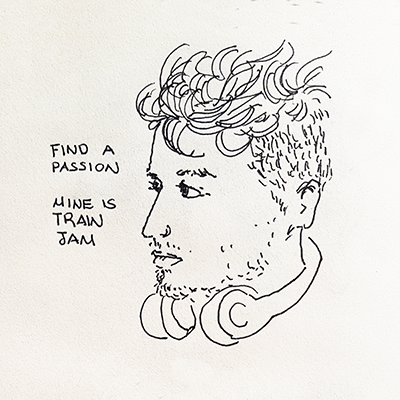 FIND A
PASSION
MINE IS
TRAIN
JAM